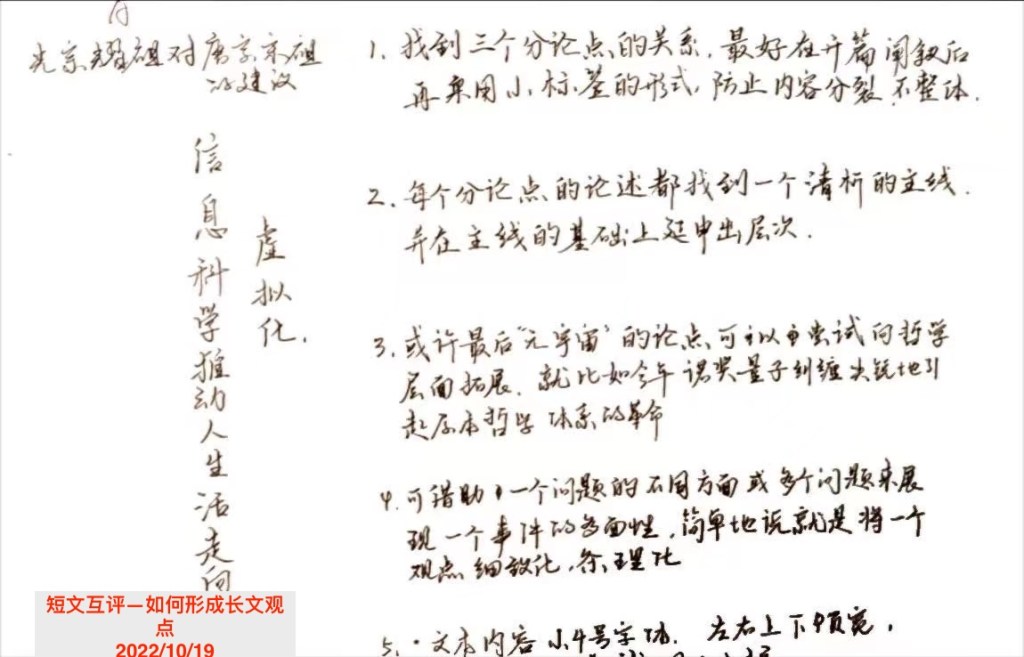 光宗耀祖对唐宗宋祖
的建议
信息科学推动人生活走向
虚拟化.
1. 找到三个分论点的关系, 最好在开篇阐叙后
再采用小标签的形式, 防止内容分裂不整体.
2. 每个分论点的论述都找到一个清析的主线.
并在主线的基础上延申出层次.
3. 或许最后"元宇宙"的论点可以尝试向哲学
层面拓展. 就比如今年诺奖量子纠缠 地引
起 哲学体系的革命
4. 可借助一个问题的不同方面或多个问题来展
现一个事件的多面性, 简单地说就是将一个
观点细致化, 条理化
5. · 文本内容 小4号字体. 左右上下 宽,
短文互评—如何形成长文观
点
2022/10/19